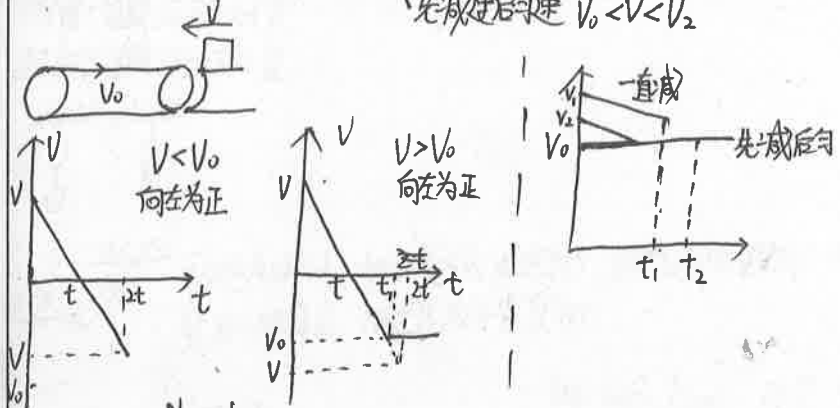 先减速后匀速 V₀<V<V₂
V
V₀
V
V<V₀
向左为正
V
t
2t
t
V
V₀
V
V>V₀
向左为正
V
t
t₁
2t
t
V₀
V
V₁
一直减
V₂
V₀
先减后匀
t₁
t₂